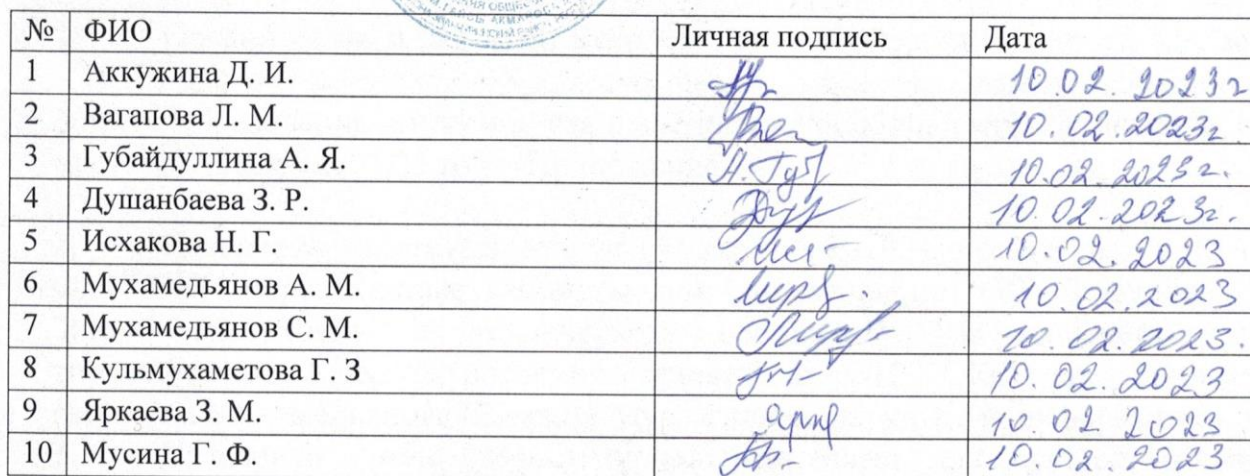 № ФИО Личная подпись Дата
1 Аккужина Д. И. 10.02.2023г
2 Вагапова Л. М. 10.02.2023г.
3 Губайдуллина А. Я. А.Губ 10.02.2023г.
4 Душанбаева З. Р. 10.02.2023г.
5 Исхакова Н. Г. 10.02.2023
6 Мухамедьянов А. М. 10.02.2023
7 Мухамедьянов С. М. 10.02.2023.
8 Кульмухаметова Г. З 10.02.2023
9 Яркаева З. М. 10.02 2023
10 Мусина Г. Ф. 10.02.2023